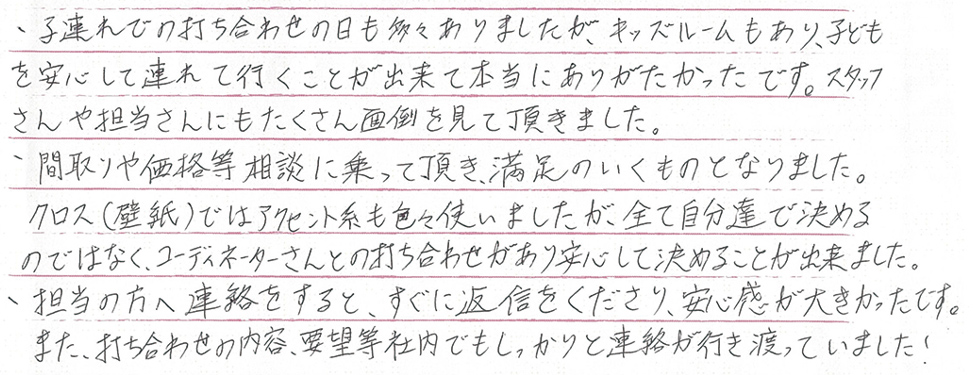 、子連れでの打ち合わせの日も多々ありましたが、キッズルームもあり、子ども
を安心して連れて行くことが出来て本当にありがたかったです。スタッフ
さんや担当さんにもたくさん面倒を見て頂きました。
、間取りや価格等相談に乗って頂き、満足のいくものとなりました。
クロス(壁紙)ではアクセント系も色々使いましたが、全て自分達で決める
のではなく、コーディネーターさんとの打ち合わせがあり安心して決めることが出来ました。
、担当の方へ連絡をすると、すぐに返信をくださり、安心感が大きかったです。
また、打ち合わせの内容、要望等社内でもしっかりと連絡が行き渡っていました!